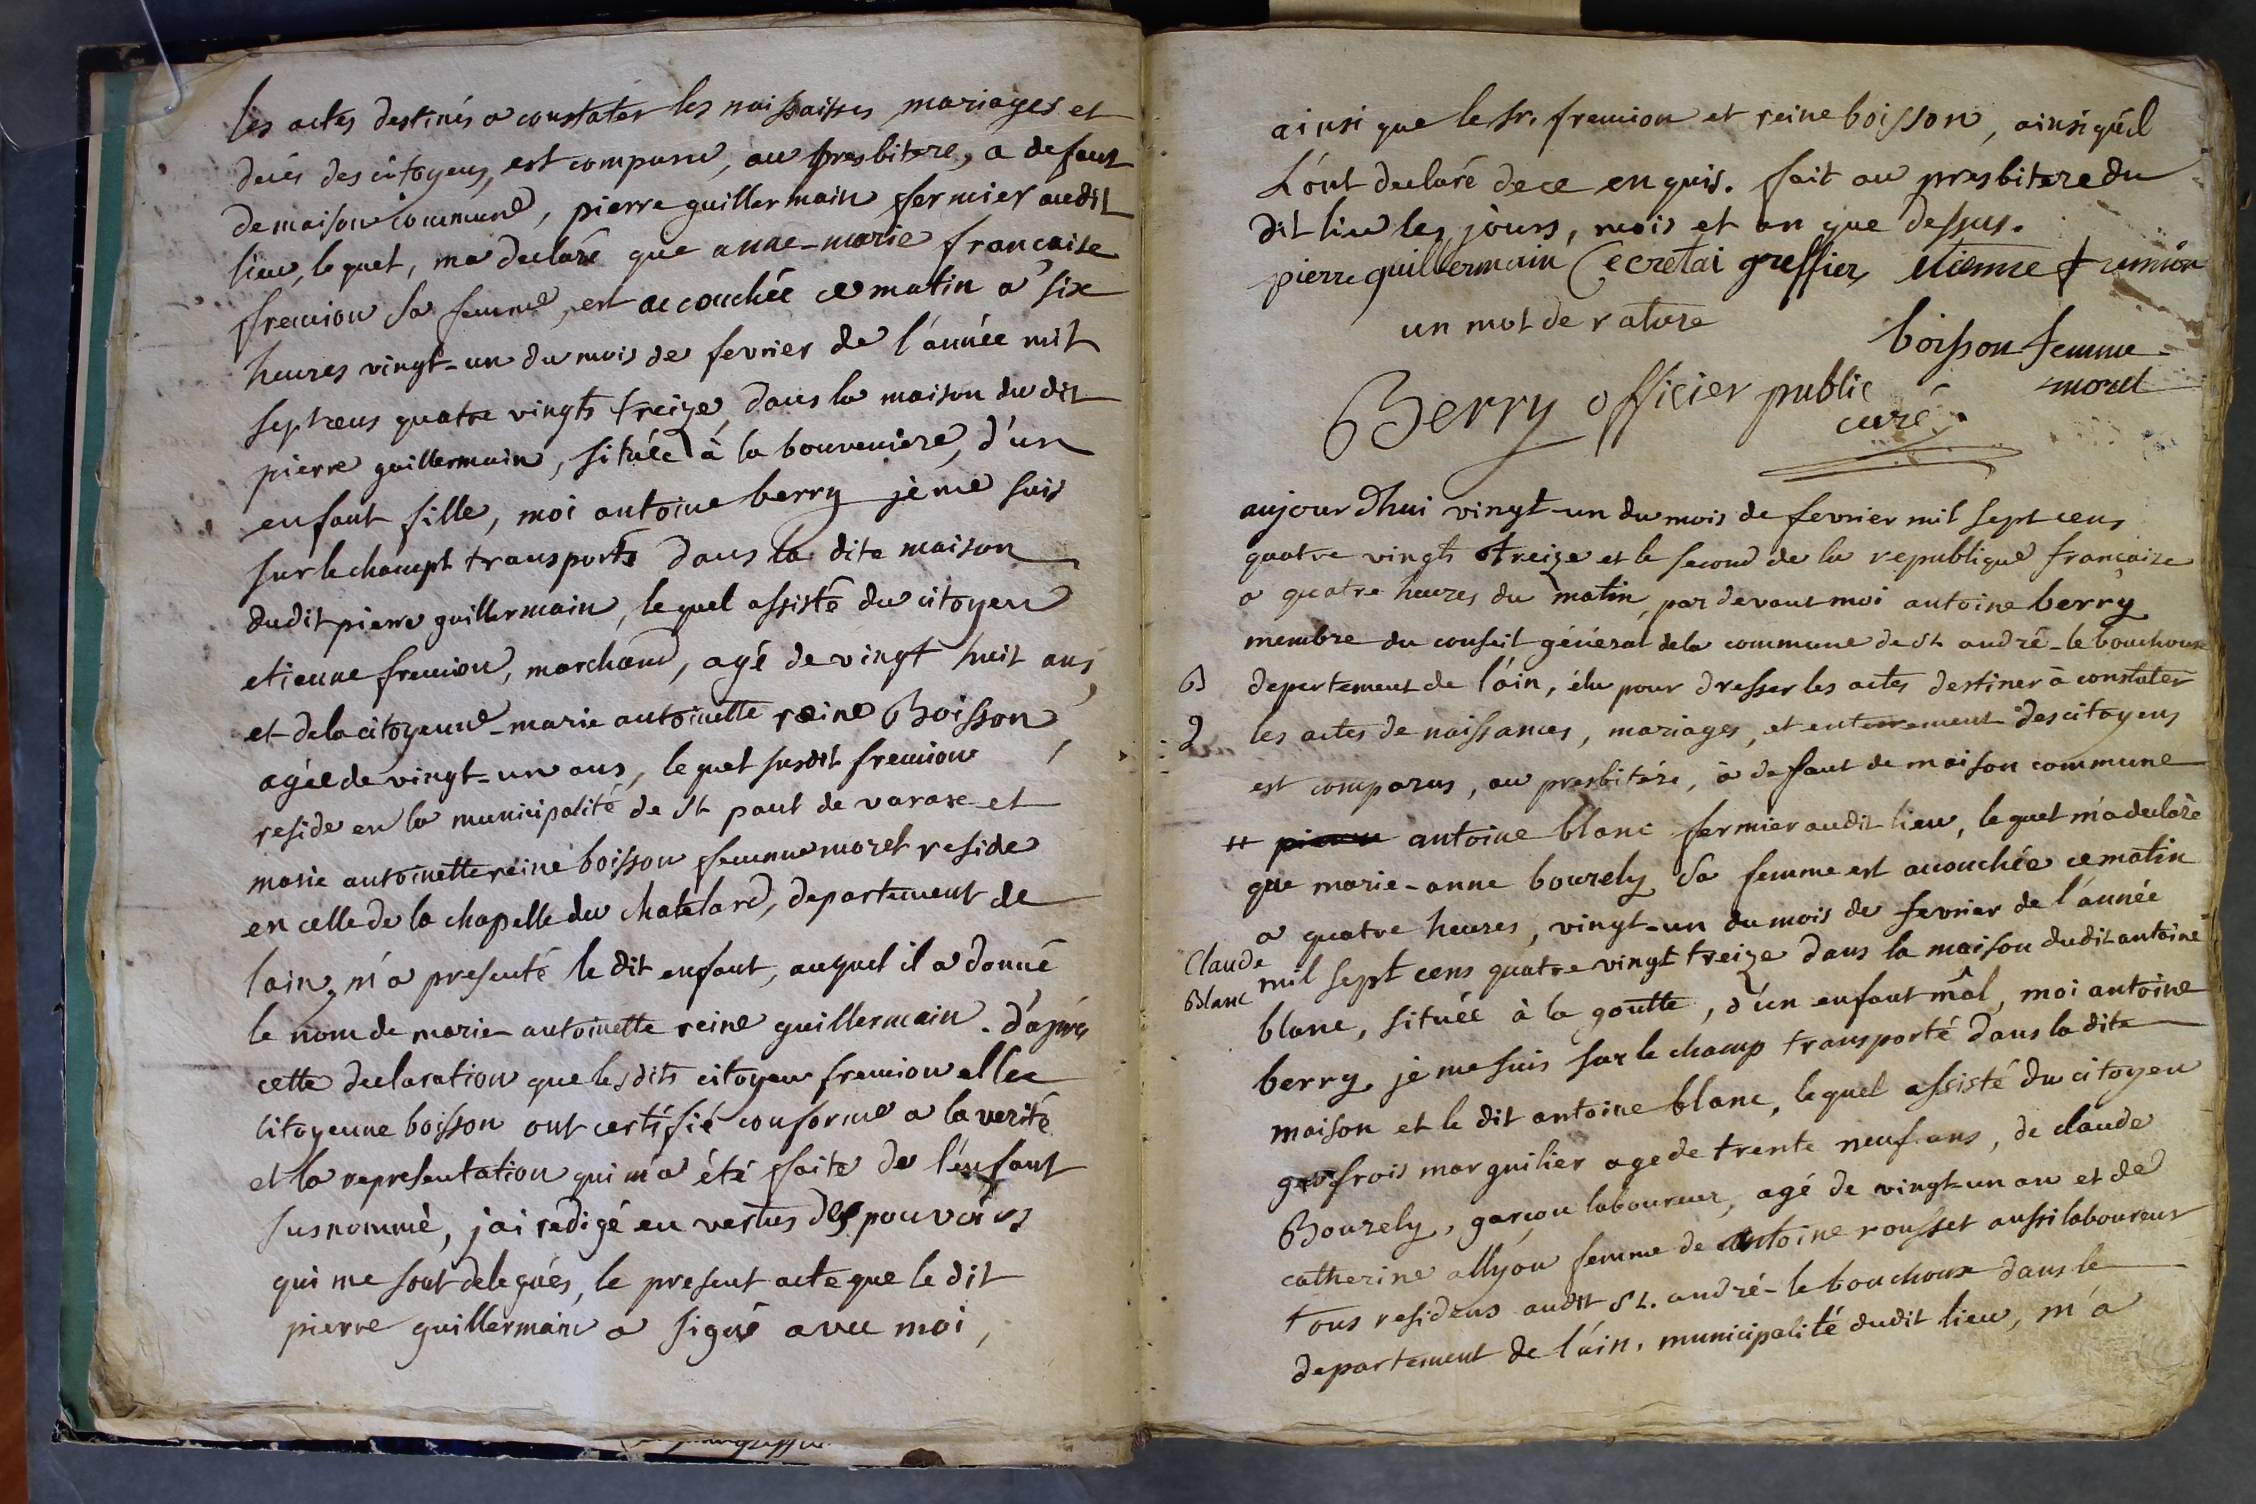 les actes destinés a constater les naissaisses mariages et
decés des citoyens, est comparu, au presbitere, a defaut
de maison commune, pierre guillermain fermier audit
lieu, lequel, ma declaré que anne-marie française
fremion sa femme, est accouchée ce matin a six
heures vingt-un du mois de fevrier de l'année mil
septcens quatre vingts treize, dans la maison du dit
pierre guillermain, située à la bouveniere, d'un
enfant fille, moi antoine berry je me suis
sur le champt transporté dans la dite maison
dudit pierre guillermain, lequel assisté du citoyen
etienne fremion, marchand, agé de vingt huit ans,
et de la citoyenne marie antoinette reine Boisson,
agée de vingt-un ans, lequel susdit fremion
reside en la municipalité de St paul de varax et
marie antoinette reine boisson femme morel reside
en celle de la chapelle du chatelard, departement de
lain, m'a presenté le dit enfant, auquel il a donné
le nom de marie-antoinette reine guillermain. d'après
cette declaration que lesdits citoyen fremion et lec
citoyenne boisson ont certifié conforme a la verité
et la representation qui m'a été faite de l'enfant
susnommè, j'ai redigé en vertus des pouvoirs
qui me sont delegués, le present acte que le dit
pierre guillermain a signé avec moi,
ainsi que le sr. fremion et reine boisson, ainsi qu'il
L'ont declaré de ce enquis. fait au presbitere du
dit lieu les jours, mois et an que dessus.
pierre guillermain Cecretai greffier etienne fremion
un mot de rature
boisson femme
morel
Berry officier public
curé
aujourdhui vingt-un du mois de fevrier mil sept cens
quatre vingts treize et le second de la republique françaize
a quatre heures du matin, par devant moi antoine berry
membre du conseil général de la commune de St andré-le bouchoux
departement de l'ain, élu pour dresser les actes destiner à constater
les actes de naissances, mariages, et enterrement des citoyens
est comparus, au presbitére, à defaut de maison commune
pierre antoine blanc fermier audit lieu, lequel m'a declaré
que marie-anne bourely sa femme est accouchée ce matin
a quatre heures, vingt-un du mois de fevrier de l'année
Claude
Blanc
mil sept cens quatre vingt treize dans la maison dudit antoine
blanc, située à la goutte, d'un enfant mâl, moi antoine
berry je me suis sur le champ transporté dans la dite
maison et le dit antoine blanc, lequel assisté du citoyen
frois marguilier age de trente neuf ans, de claude
Bourely, garçon laboureur, agé de vingt-un an et de
catherine allyon femme de antoine rousset aussi laboureur
tous residens audit St. andré-le bouchoux dans le
departement de l'ain, municipalité dudit lieu, m'a